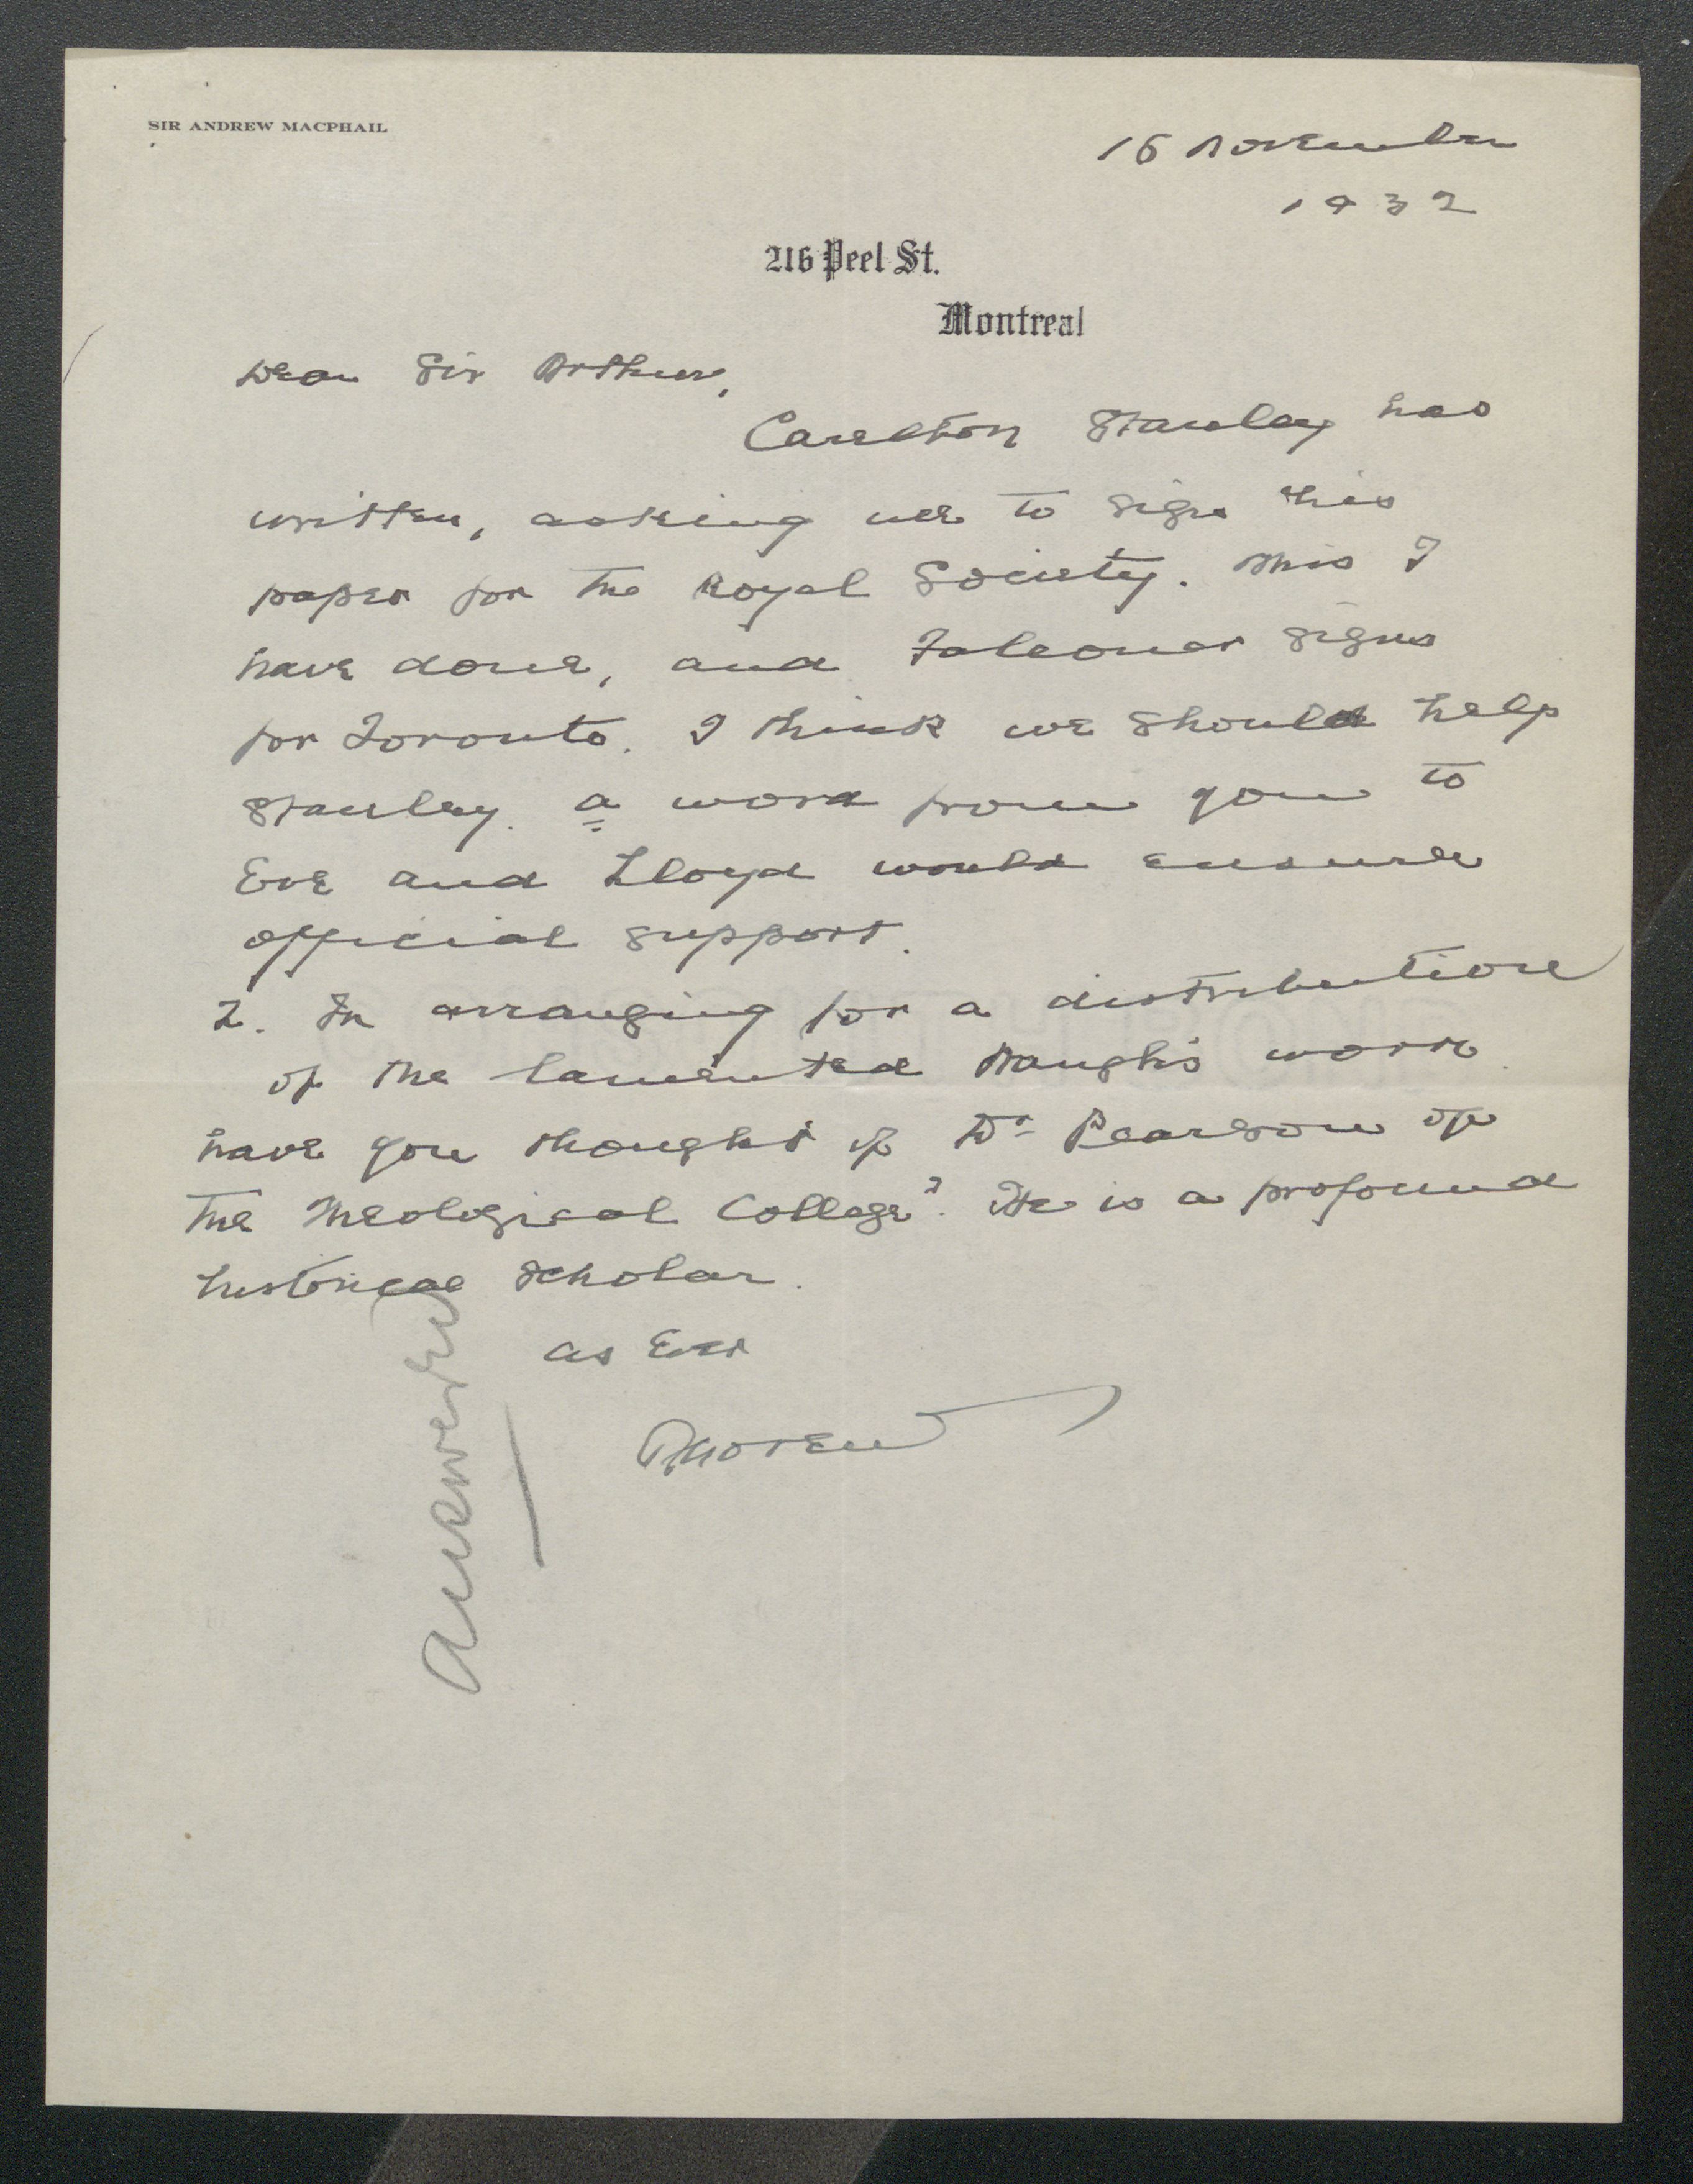 SIR ANDREW MACPHAIL
16 November
1932
216 Peel St.
Montreal
Dear Sir Arthur,
Carleton Stanley has
written, asking me to sign his
paper for the Royal Society. This I
have done, and Falconer signs
for Toronto. I think we should help
Stanley. A word from you to
Eve and Lloyd would ensure
official support.
2. In arranging for a distribution
of the lamented Waugh's work
have you thought of Dr Pearson of
the Theological College? He is a profound
historical scholar.
as Ever
Andrew
Answered